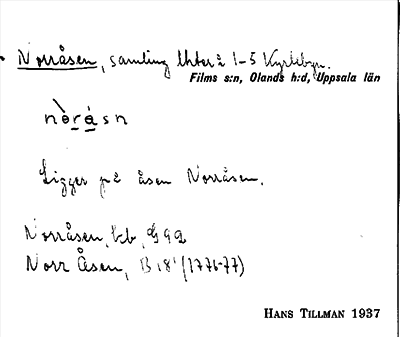 Norråsen, samling Utter å 1-5 Kyrkbyn.
Films s:n, Olands h:d, Uppsala län
nòrásn
Ligger på åsen Norråsen.
Norråsen, bb, G 92
Norr Åsen, B 18' (1776-77)
HANS TILLMAN 1937